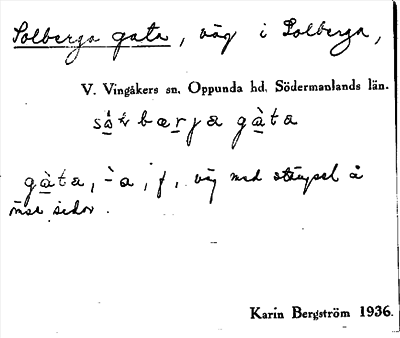 Solberga gata, väg i Solberga,
V. Vingåkers sn. Oppunda hd. Södermanlands län.
gàta
gàta, -a, f, väg med stängsel å
ömse sidor.
Karin Bergström 1936.